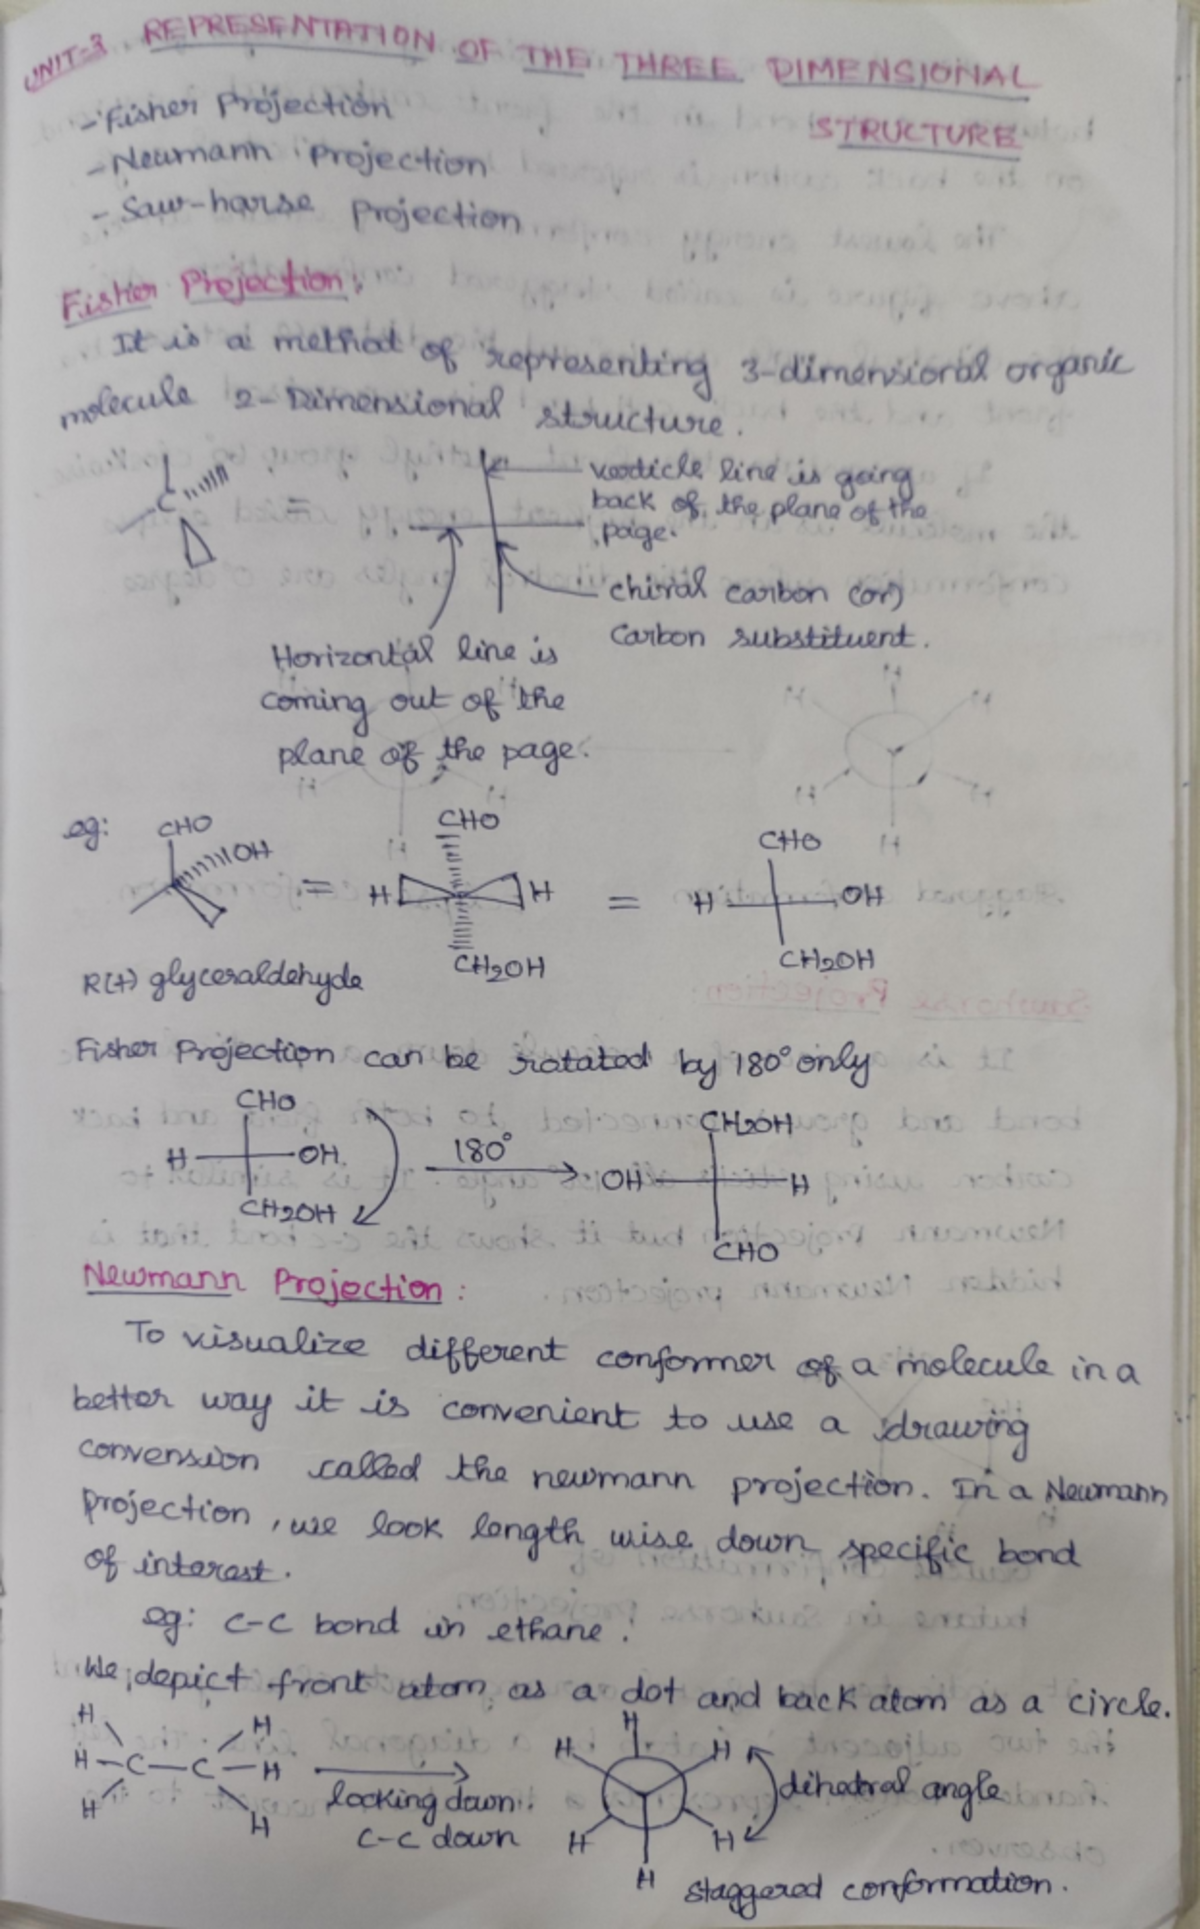 UNIT-3 REPRESENTATION OF THE THREE DIMENSIONAL
STRUCTURE
- Fisher Projection
- Neumann Projection
- Saw-horse Projection
Fisher Projection:
It is a method of representing 3-dimensional organic
molecule 2-Dimensional structure.
C
=
verticle line is going
back of the plane of the
page.
chiral carbon (or)
Carbon substituent.
Horizontal line is
coming out of the
plane of the page.
eg:
CHO
OH
=
CHO
H H
CH2OH
=
CHO
H OH
CH2OH
R(+) glyceraldehyde
Fisher Projection can be rotated by 180° only
CHO
H OH
CH2OH
180°
CH2OH
OH H
CHO
Newmann Projection:
To visualize different conformer of a molecule in a
better way it is convenient to use a drawing
convension called the newmann projection. In a Newmann
Projection, we look length wise down specific bond
of interest.
eg: C-C bond in ethane.
We depict front atom as a dot and back atom as a circle.
H H
H-C-C-H
H H
looking down
C-C down
H
H H
H H
H
dihedral angle
staggered conformation.